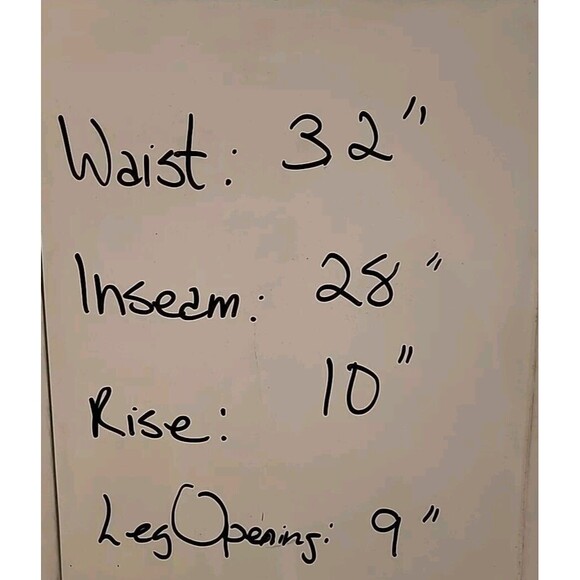 Waist: 32"
Inseam: 28"
Rise: 10"
Leg Opening: 9"